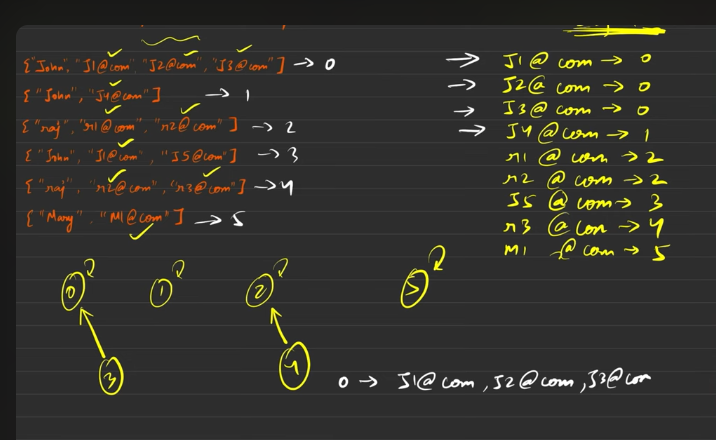 {"John", "J1@com", "J2@com", "J3@com"] → 0
{"John", "J4@com"] → 1
{"raj", "r1@com", "r2@com"] → 2
{"John", "J1@com", "J5@com"] → 3
{"raj", "r2@com", "r3@com"] → 4
{"Mary", "M1@com"] → 5
→ J1@com → 0
→ J2@com → 0
→ J3@com → 0
→ J4@com → 1
r1@com → 2
r2@com → 2
J5@com → 3
r3@com → 4
M1@com → 5
0 1 2 5
3 4
0 → J1@com, J2@com, J3@com